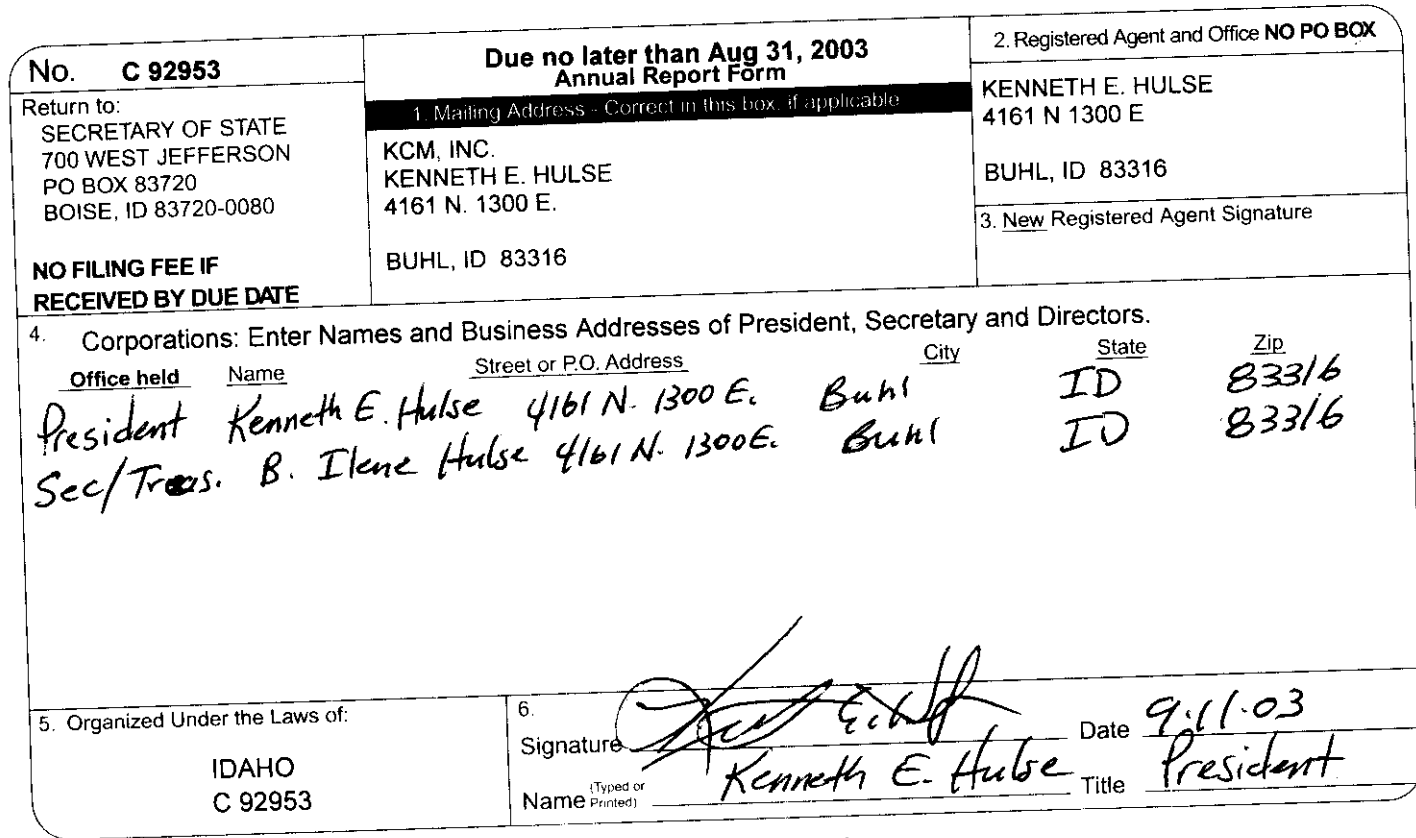 No. C 92953
Return to:
SECRETARY OF STATE
700 WEST JEFFERSON
PO BOX 83720
BOISE, ID 83720-0080
NO FILING FEE IF
RECEIVED BY DUE DATE
Due no later than Aug 31, 2003
Annual Report Form
1. Mailing Address - Correct in this box, if applicable
KCM, INC.
KENNETH E. HULSE
4161 N. 1300 E.
BUHL, ID 83316
2. Registered Agent and Office NO PO BOX
KENNETH E. HULSE
4161 N 1300 E
BUHL, ID 83316
3. New Registered Agent Signature
4. Corporations: Enter Names and Business Addresses of President, Secretary and Directors.
Office held Name Street or P.O. Address City State Zip
President Kenneth E. Hulse 4161 N. 1300 E. Buhl ID 83316
Sec/Treas. B. Ilene Hulse 4161 N. 1300 E. Buhl ID 83316
5. Organized Under the Laws of:
IDAHO
C 92953
6.
Signature Date 9.11.03
Name (Typed or Printed) Kenneth E. Hulse Title President